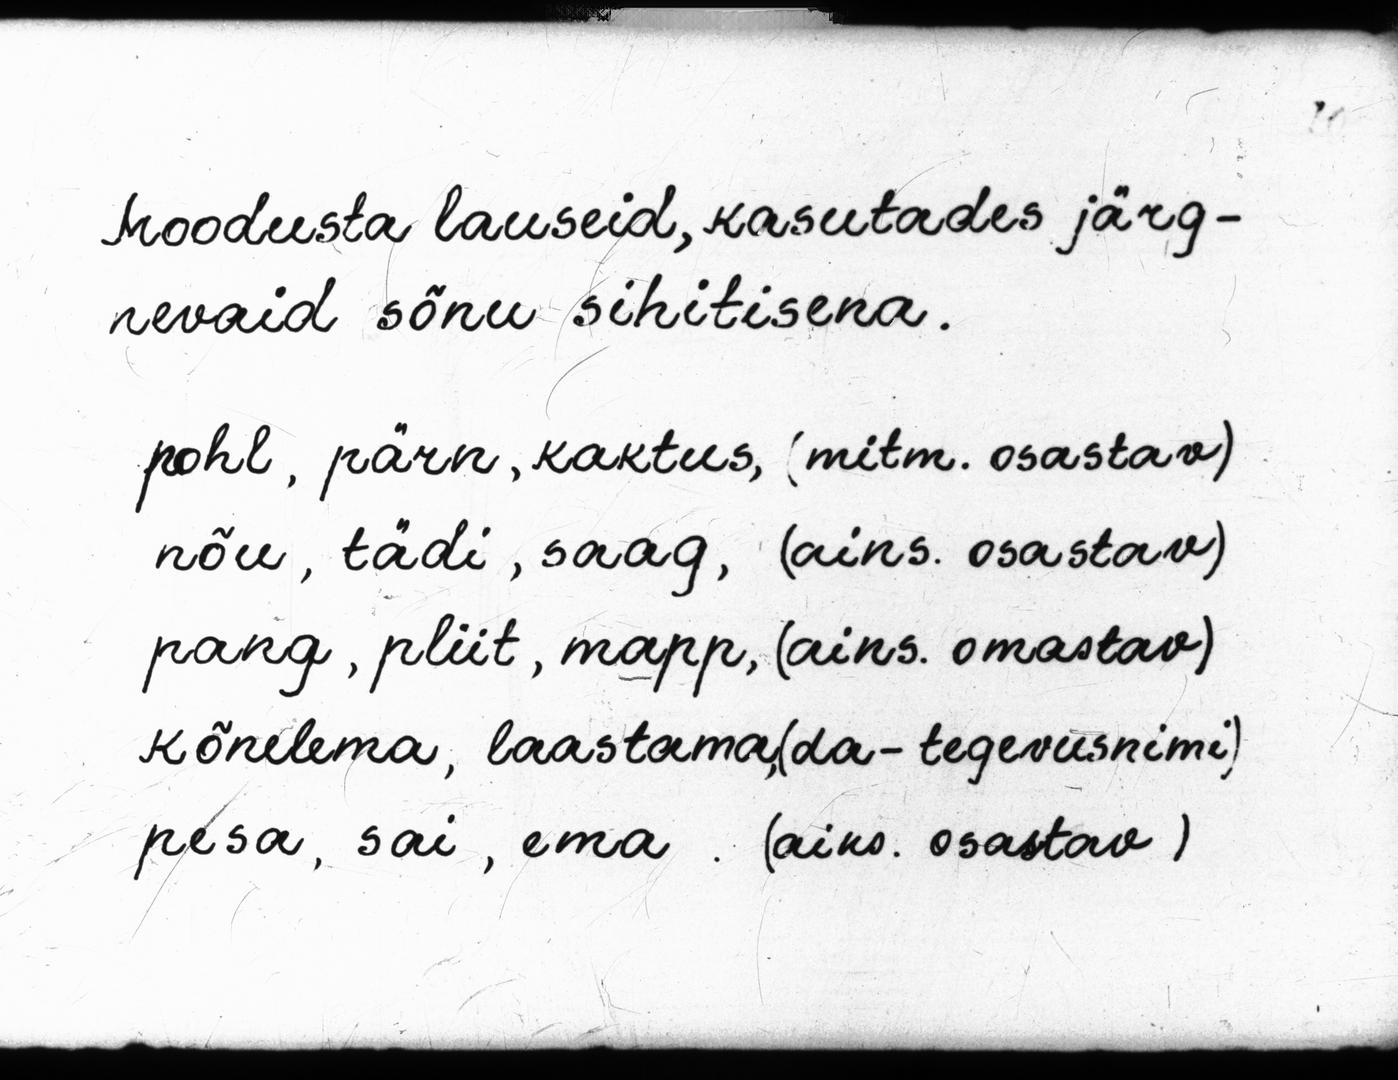 Moodusta lauseid, kasutades järg-
nevaid sõnu sihitisena.
pohl, pärn, kaktus, (mitm. osastav)
nõu, tädi, saag, (ains. osastav)
pang, pliit, mapp, (ains. omastav)
kõnelema, laastama, (da-tegevusnimi)
pesa, sai, ema. (ains. osastav)